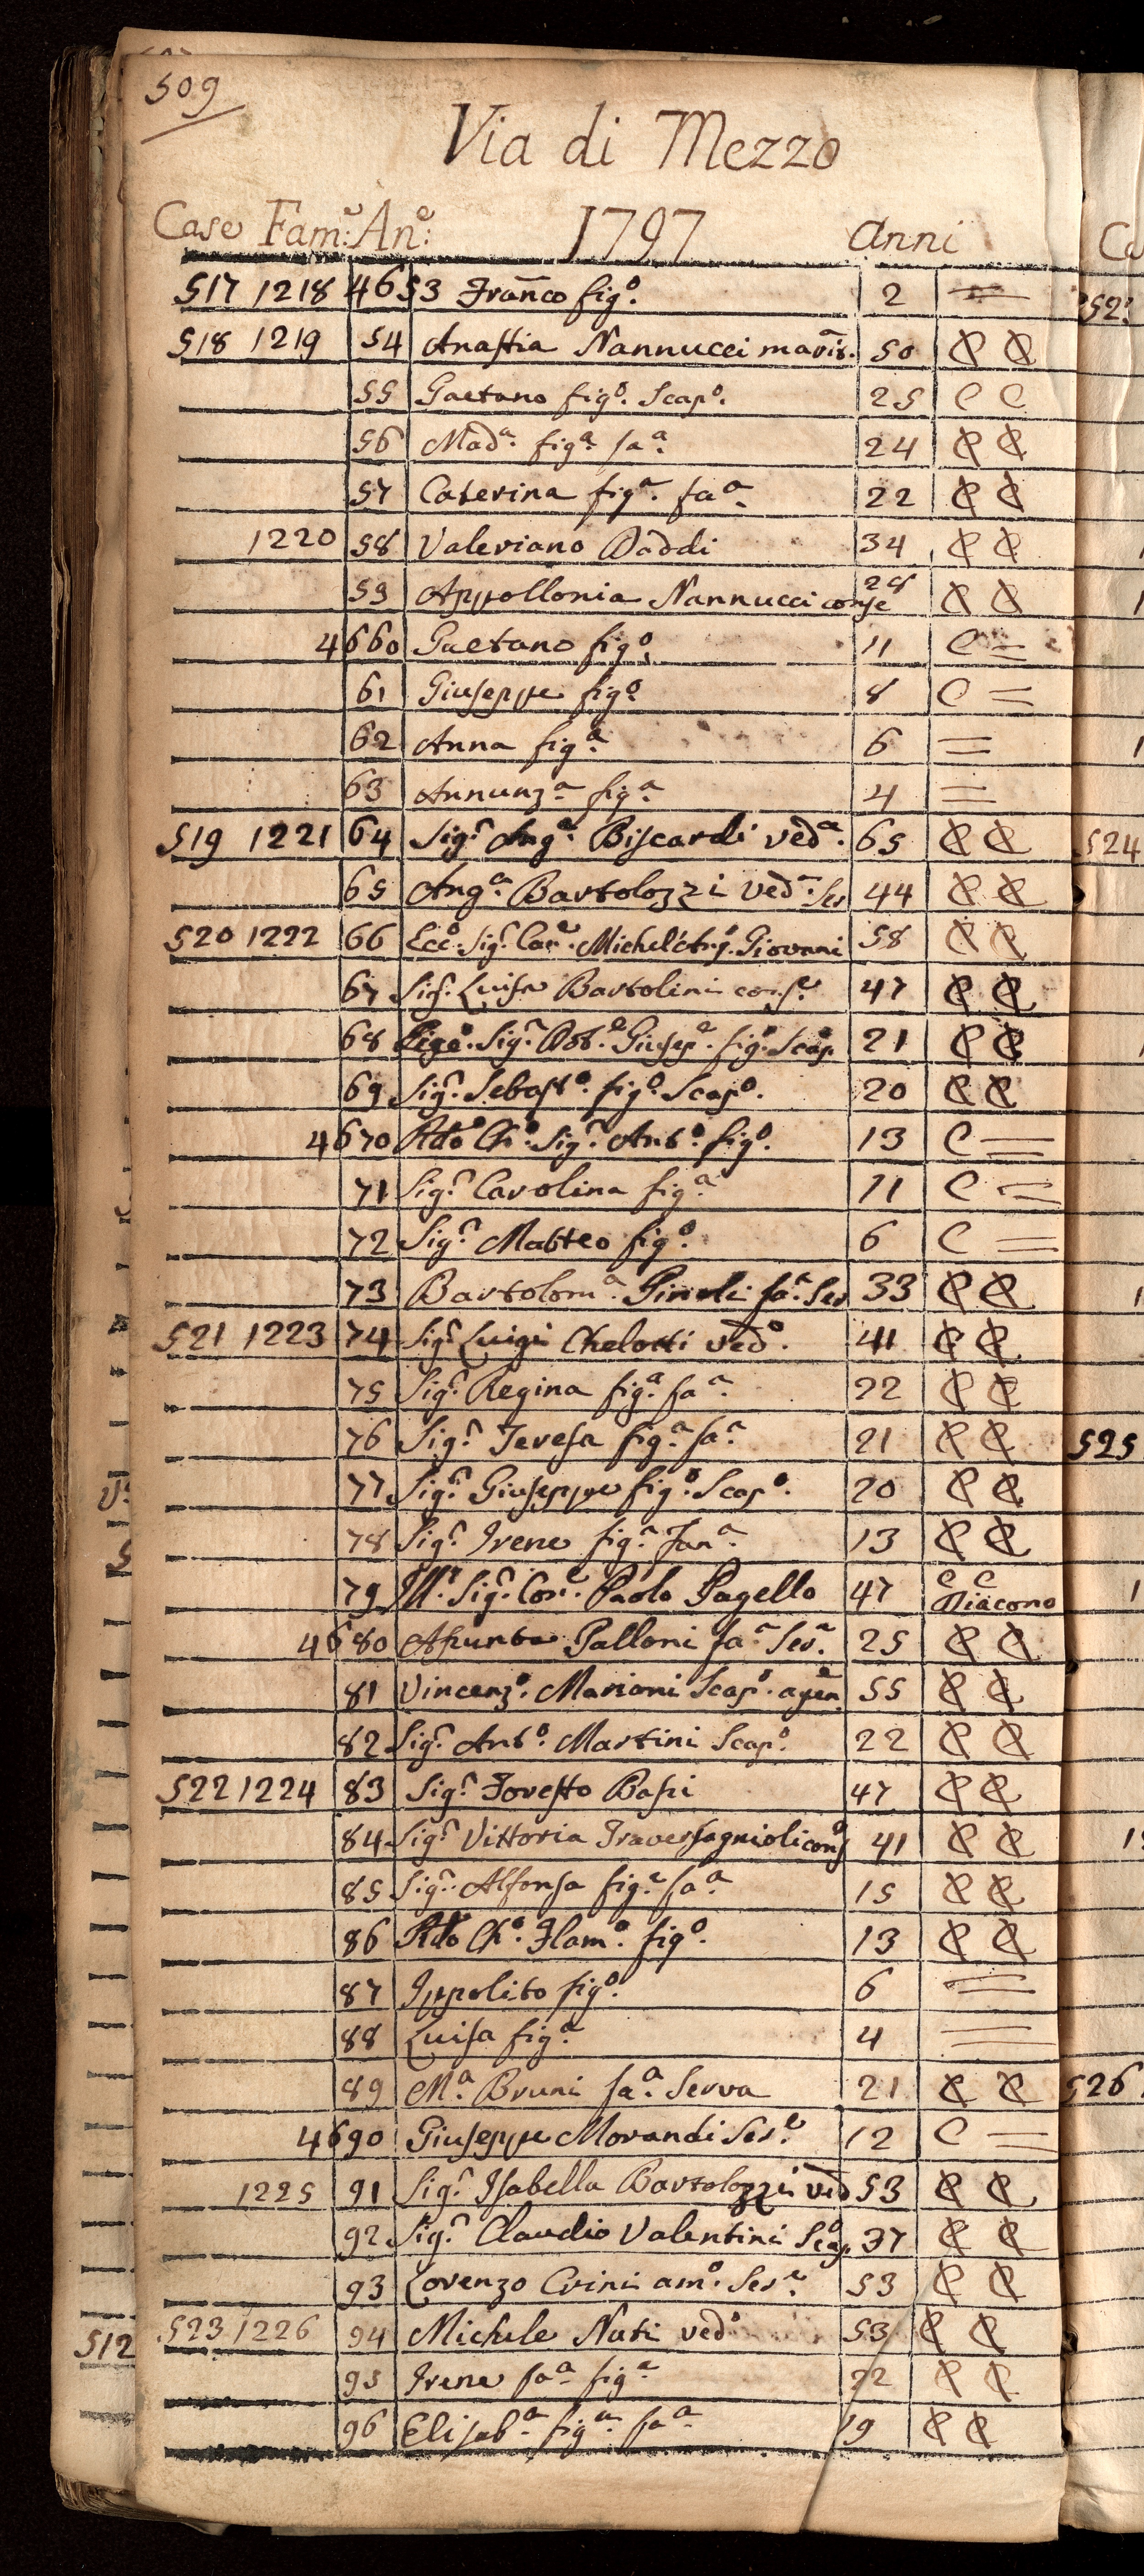 509
Via di Mezzo
Case Fam:e An:e 1797 Anni
517 1218 4653 Franco figo. 2 =
518 1219 54 Anastia Nannucci marit. 50 C C
55 Gaetano figo. Scapo. 25 C C
56 Mada. figa. faa. 24 C C
57 Caterina figa. faa. 22 C C
1220 58 Valeriano Daddi 34 C C
59 Appollonia Nannucci conge 28 C C
4660 Gaetano figo. 11 C =
61 Giuseppe figo. 8 C =
62 Anna figa. 6 =
63 Annunza. figa. 4 =
519 1221 64 Sigr. Anga. Biscardi veda. 65 C C
65 Anga. Bartolozzi veda. Ser 44 C C
520 1222 66 Ecco. Sigr. Cave. Michel'Ango. Giovanni 58 C C
67 Sigr. Luisa Bartolini conse. 47 C C
68 Sigr. Dote. Giusepe. figo. Scapo. 21 C C
69 Sigr. Sebasto. figo. Scapo. 20 C C
4670 Rdo Cho. Sigr. Anto. figo. 13 C =
71 Sigr. Carolina figa. 11 C =
72 Sigr. Matteo figo. 6 C =
73 Bartoloma. faa. Ser 33 C C
521 1223 74 Sigr. Luigi Chelotti vedo. 41 C C
75 Sigr. Regina figa. faa. 22 C C
76 Sigr. Teresa figa. faa. 21 C C
77 Sigr. Giuseppe figo. Scapo. 20 C C
78 Sigr. Irene figa. Fana. 13 C C
79 Illr. Sigr. Paolo Pagello 47 C C Diacono
4680 Asunta Galloni faa. Sera. 25 C C
81 Vincenzo. Marioni Scapo. agen 55 C C
82 Sigr. Anto. Martini Scapo. 22 C C
522 1224 83 Sigr. Foresto Bassi 47 C C
84 Sigr. Vittoria Traversagnioli cong 41 C C
85 Sigr. Alfonsa figa. faa. 15 C C
86 Rdo Cho. Flamo. figo. 13 C C
87 Ippolito figo. 6 =
88 Luisa figa. 4 =
89 Ma. Bruni faa. Serva 21 C C
4690 Giuseppe Morandi Sere. 12 C =
1225 91 Sigr. Isabella Bartolozzi ved 53 C C
92 Sigr. Claudio Valentini Scap. 37 C C
93 Lorenzo Crini amo. Sere. 53 C C
523 1226 94 Michele Nuti vedo 53 C C
95 Irene faa. figa. 22 C C
96 Elisaba. figa. faa. 19 C C
524
525
526
512